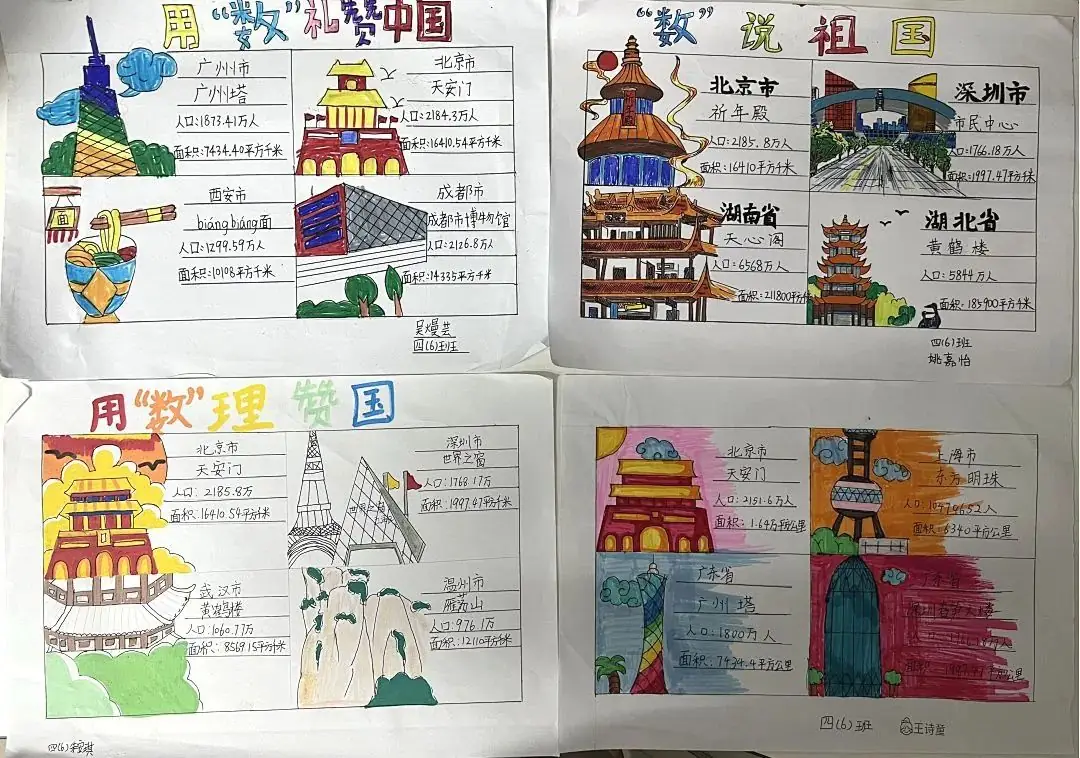 用“数”礼赞中国
广州市
广州塔
人口:1873.41万人
面积:7434.40平方千米
北京市
天安门
人口:2184.3万人
面积:16410.54平方千米
面
西安市
biángbiáng面
人口:1299.59万人
面积:10108平方千米
成都市
成都市博物馆
人口:2126.8万人
面积:14335平方千米
四(6)班
“数”说祖国
北京市
祈年殿
人口:2185.8万人
面积:16410平方千米
深圳市
市民中心
人口:1766.18万人
面积:1997.47平方千米
湖南省
天心阁
人口:6568万人
面积:211800平方千米
湖北省
黄鹤楼
人口:5844万人
面积:185900平方千米
四(6)班
姚嘉怡
用“数”理赞国
北京市
天安门
人口:2185.8万
面积:16410.54平方千米
深圳市
世界之窗
人口:1768.17万
面积:1997.47平方千米
世界之窗
武汉市
黄鹤楼
人口:1060.77万
面积:8569.15平方千米
温州市
雁荡山
人口:976.1万
面积:12110平方千米
四(6)
北京市
天安门
人口:2151.6万人
面积:1.64万平方公里
上海市
东方明珠
人口:10479652人
面积:6340平方公里
广东省
广州塔
人口:1800万人
面积:7434.4平方公里
广东省
四(6)班
王诗童